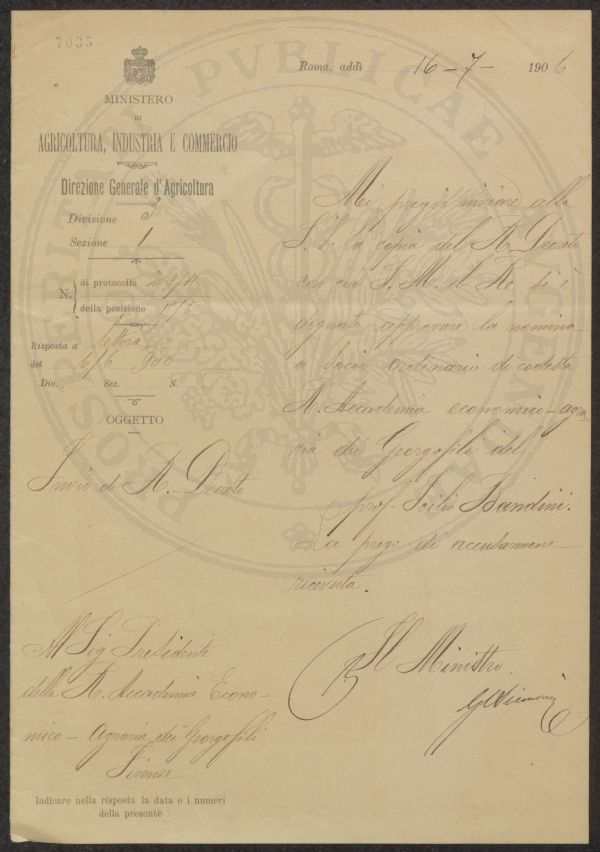 7035
Roma, addì 16 - 7 - 1906
MINISTERO
DI
AGRICOLTURA, INDUSTRIA E COMMERCIO
Direzione Generale d'Agricoltura
Divisione 3
Sezione 1
N. di protocollo
della posizione
Risposta a lettera
del 16/6 906
Div. Sez. N.
OGGETTO
Invio di R. Decreto
Mi pregio inviare alla
S. V. la copia del R. Decreto
con cui S. M. il Re si è
degnato approvare la nomina
a socio ordinario di codesta
R. Accademia economico-agra
ria dei Georgofili del
prof. Icilio Bandini.
La prego di accusarmene
ricevuta.
Il Ministro
Al Sig. Presidente
della R. Accademia Econo-
mico-Agraria dei Georgofili
Firenze
Indicare nella risposta la data e i numeri
della presente
PROSPERITATI PVBLICAE AVGENDAE